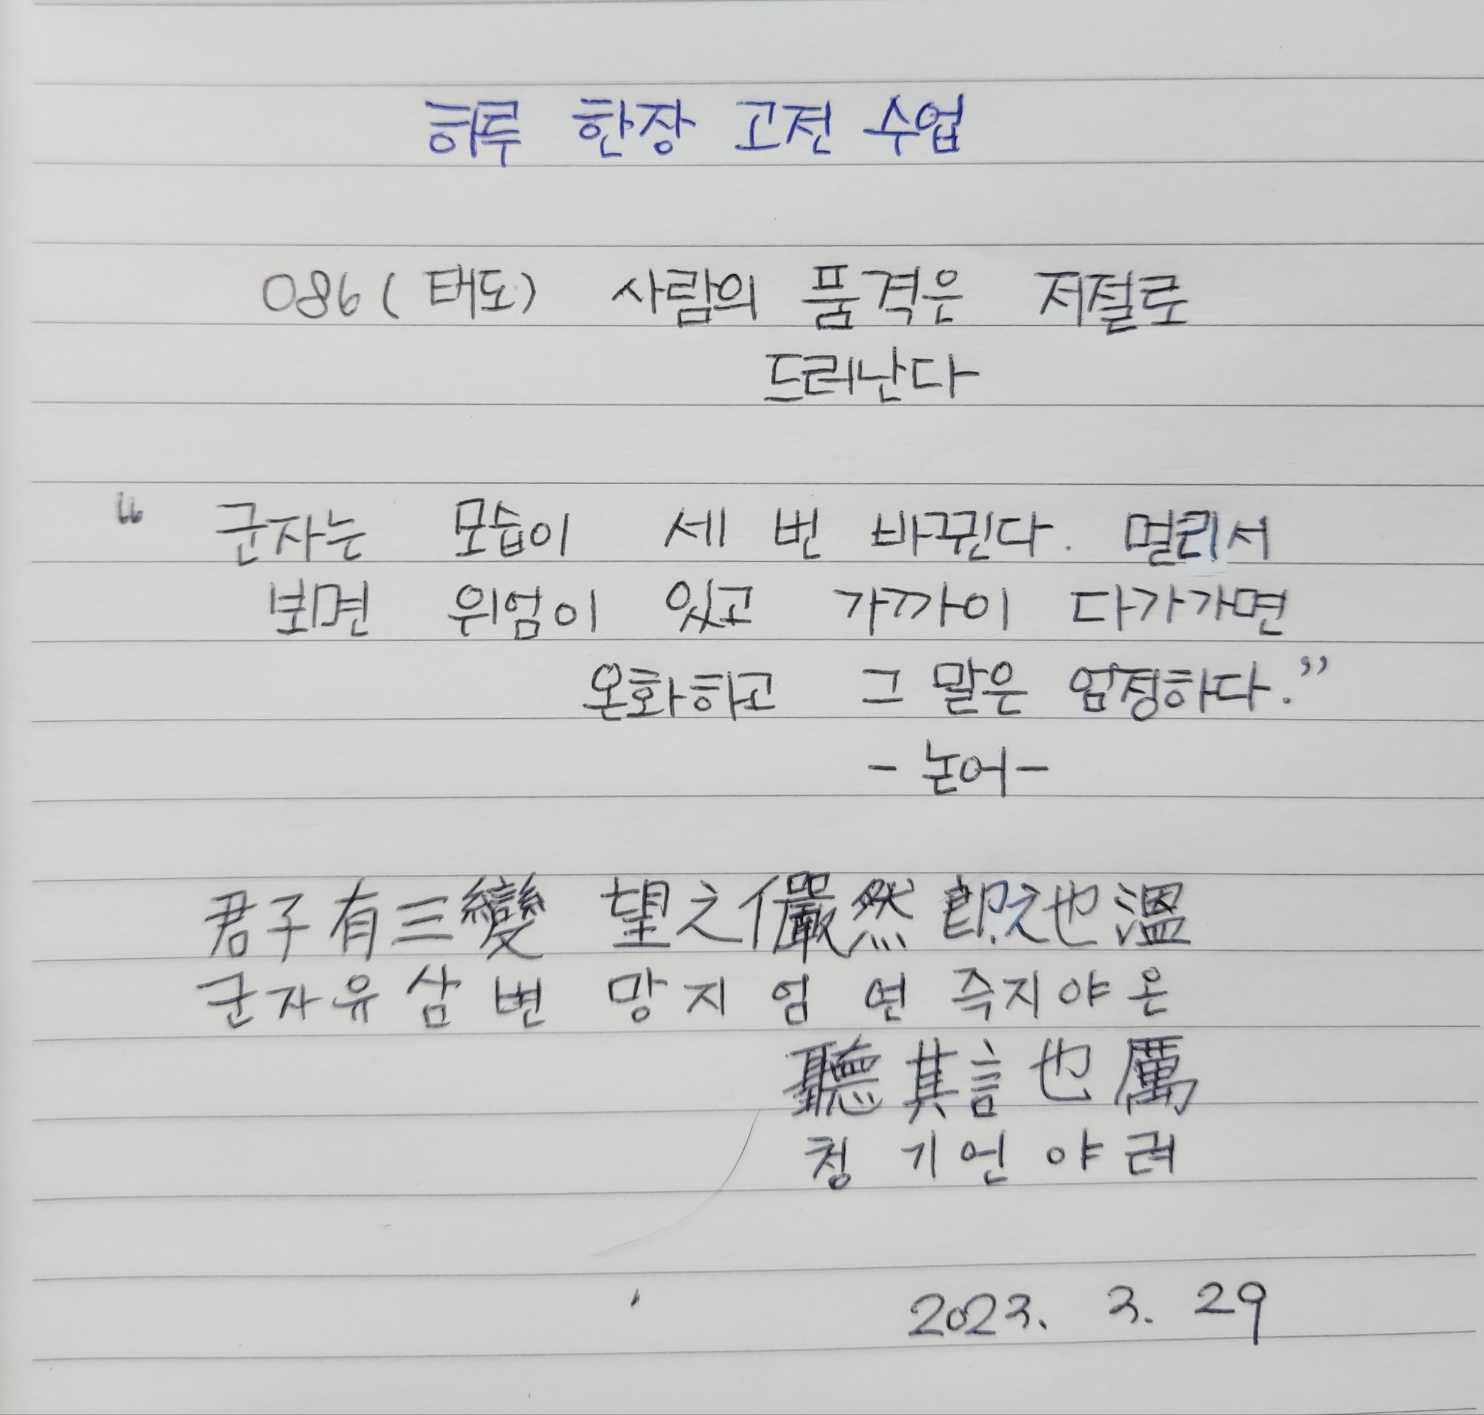 하루 한장 고전 수업
086 (태도) 사람의 품격은 저절로
드러난다
“ 군자는 모습이 세 번 바뀐다. 멀리서
보면 위엄이 있고 가까이 다가가면
온화하고 그 말은 엄정하다.”
- 논어 -
君子有三變 望之儼然 卽之也溫
군자유삼변 망지엄연 즉지야온
聽其言也厲
청기언야려
2023. 3. 29